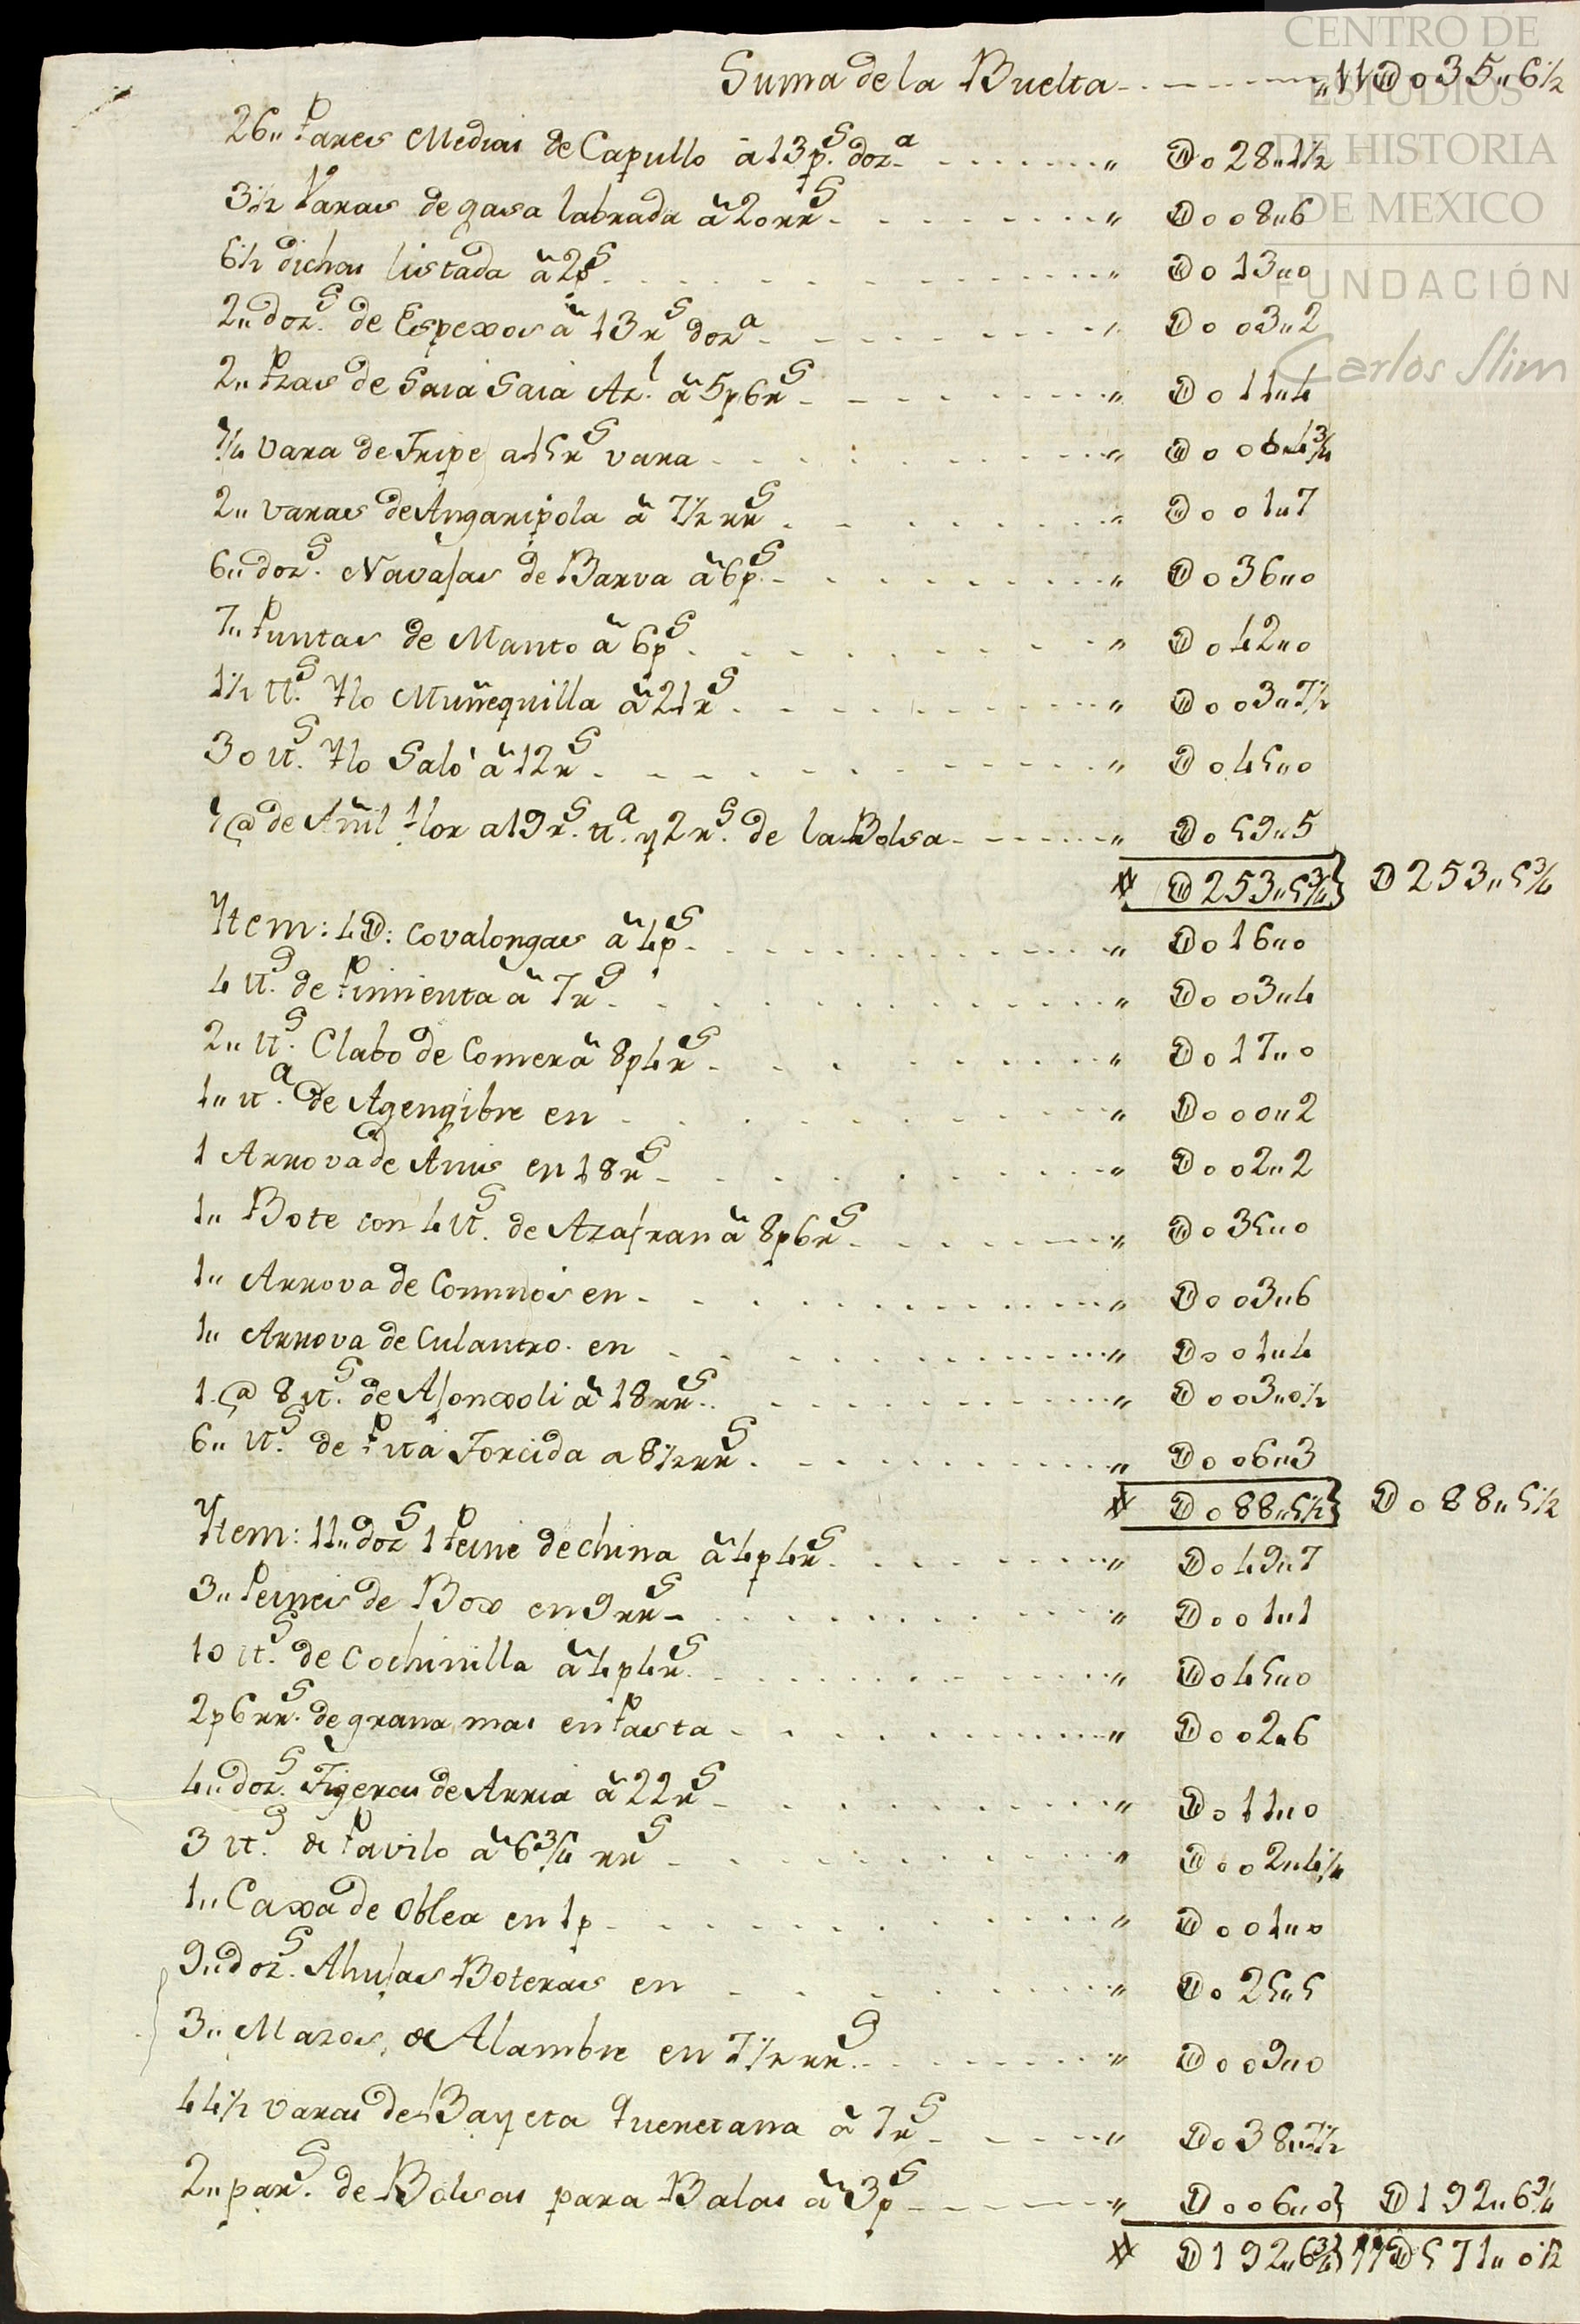 CENTRO DE
ESTUDIOS
DE HISTORIA
DE MEXICO
FUNDACIÓN
Carlos Slim
Suma de la Buelta „11U035„6½
26„ Pares Medias de Capullo â 13p.s doz.a „ U028„1½
3½ Varas de gasa labrada â 20rr.s „ U008„6
6½ dichas listada â 2p.s „ U013„0
2„ doz.s de Espexos â 13r.s doz.a „ U003„2
2„ Pzas de Saia Saia Az.l â 5p6r.s „ U011„4
¼ Vara de Tripe a 15r.s vara „ U006„4¾
2„ varas de Angaripola â 7½ rr.s „ U001„7
6„ doz.s Navajas de Barva â 6p.s „ U036„0
7„ Puntas de Manto â 6p.s „ U042„0
1½ tt.s Ylo Muñequilla â 21r.s „ U003„7½
30 tt.s Ylo Saló â 12r.s „ U045„0
1 @ de Añil flor a 19r.s tt.a y 2r.s de la Bolsa „ U059„5
# U253„5¾} U253„5¾
Ytem: 4U: Covalongas â 4p.s „ U016„0
4 tt.s de Pimienta â 7r.s „ U003„4
2„ tt.s Clabo de Comer â 8p4r.s „ U017„0
1„ tt.a de Agengibre en „ U000„2
1 Arrova de Anis en 18r.s „ U002„2
1„ Bote con 4 tt.s de Azafran â 8p6r.s „ U035„0
1„ Arrova de Cominos en „ U003„6
1„ Arrova de Culantro en „ U001„4
1 @ 8 tt.s de Ajonxoli â 18rr.s „ U003„0½
6„ tt.s de Pita Torcida a 8½rr.s „ U006„3
# U088„5½} U088„5½
Ytem: 11„ doz.s 1 Peine de china â 4p4r.s „ U049„7
3„ Peines de Box en 9rr.s „ U001„1
10 tt.s de Cochinilla â 4p4r.s „ U045„0
2p6rr.s de grana mas en Pasta „ U002„6
4„ doz.s Tigeras de Arria â 22r.s „ U011„0
3 tt.s de Pavilo â 6¾ rr.s „ U002„4¼
1„ Caxa de Oblea en 1p „ U001„0
9„ doz.s Ahujas Boteras en „ U025„5
3„ Mazos de Alambre en 7½rr.s „ U009„0
44½ varas de Bayeta Queretana â 7r.s „ U038„7½
2„ par.s de Bolsas para Balas â 3p.s „ U006„0} U192„6¾
# U192„6¾} 11U571„0½